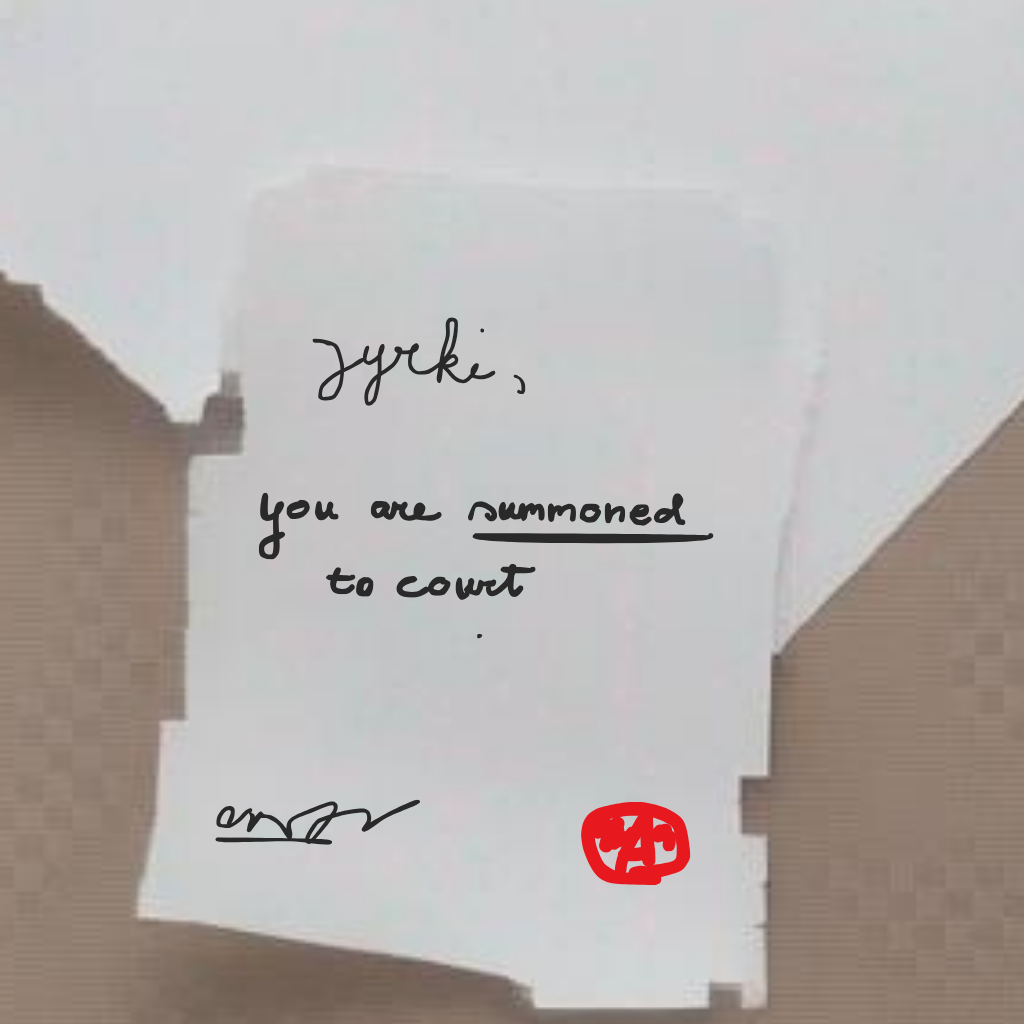 Jyrki,
you are summoned
to court
.